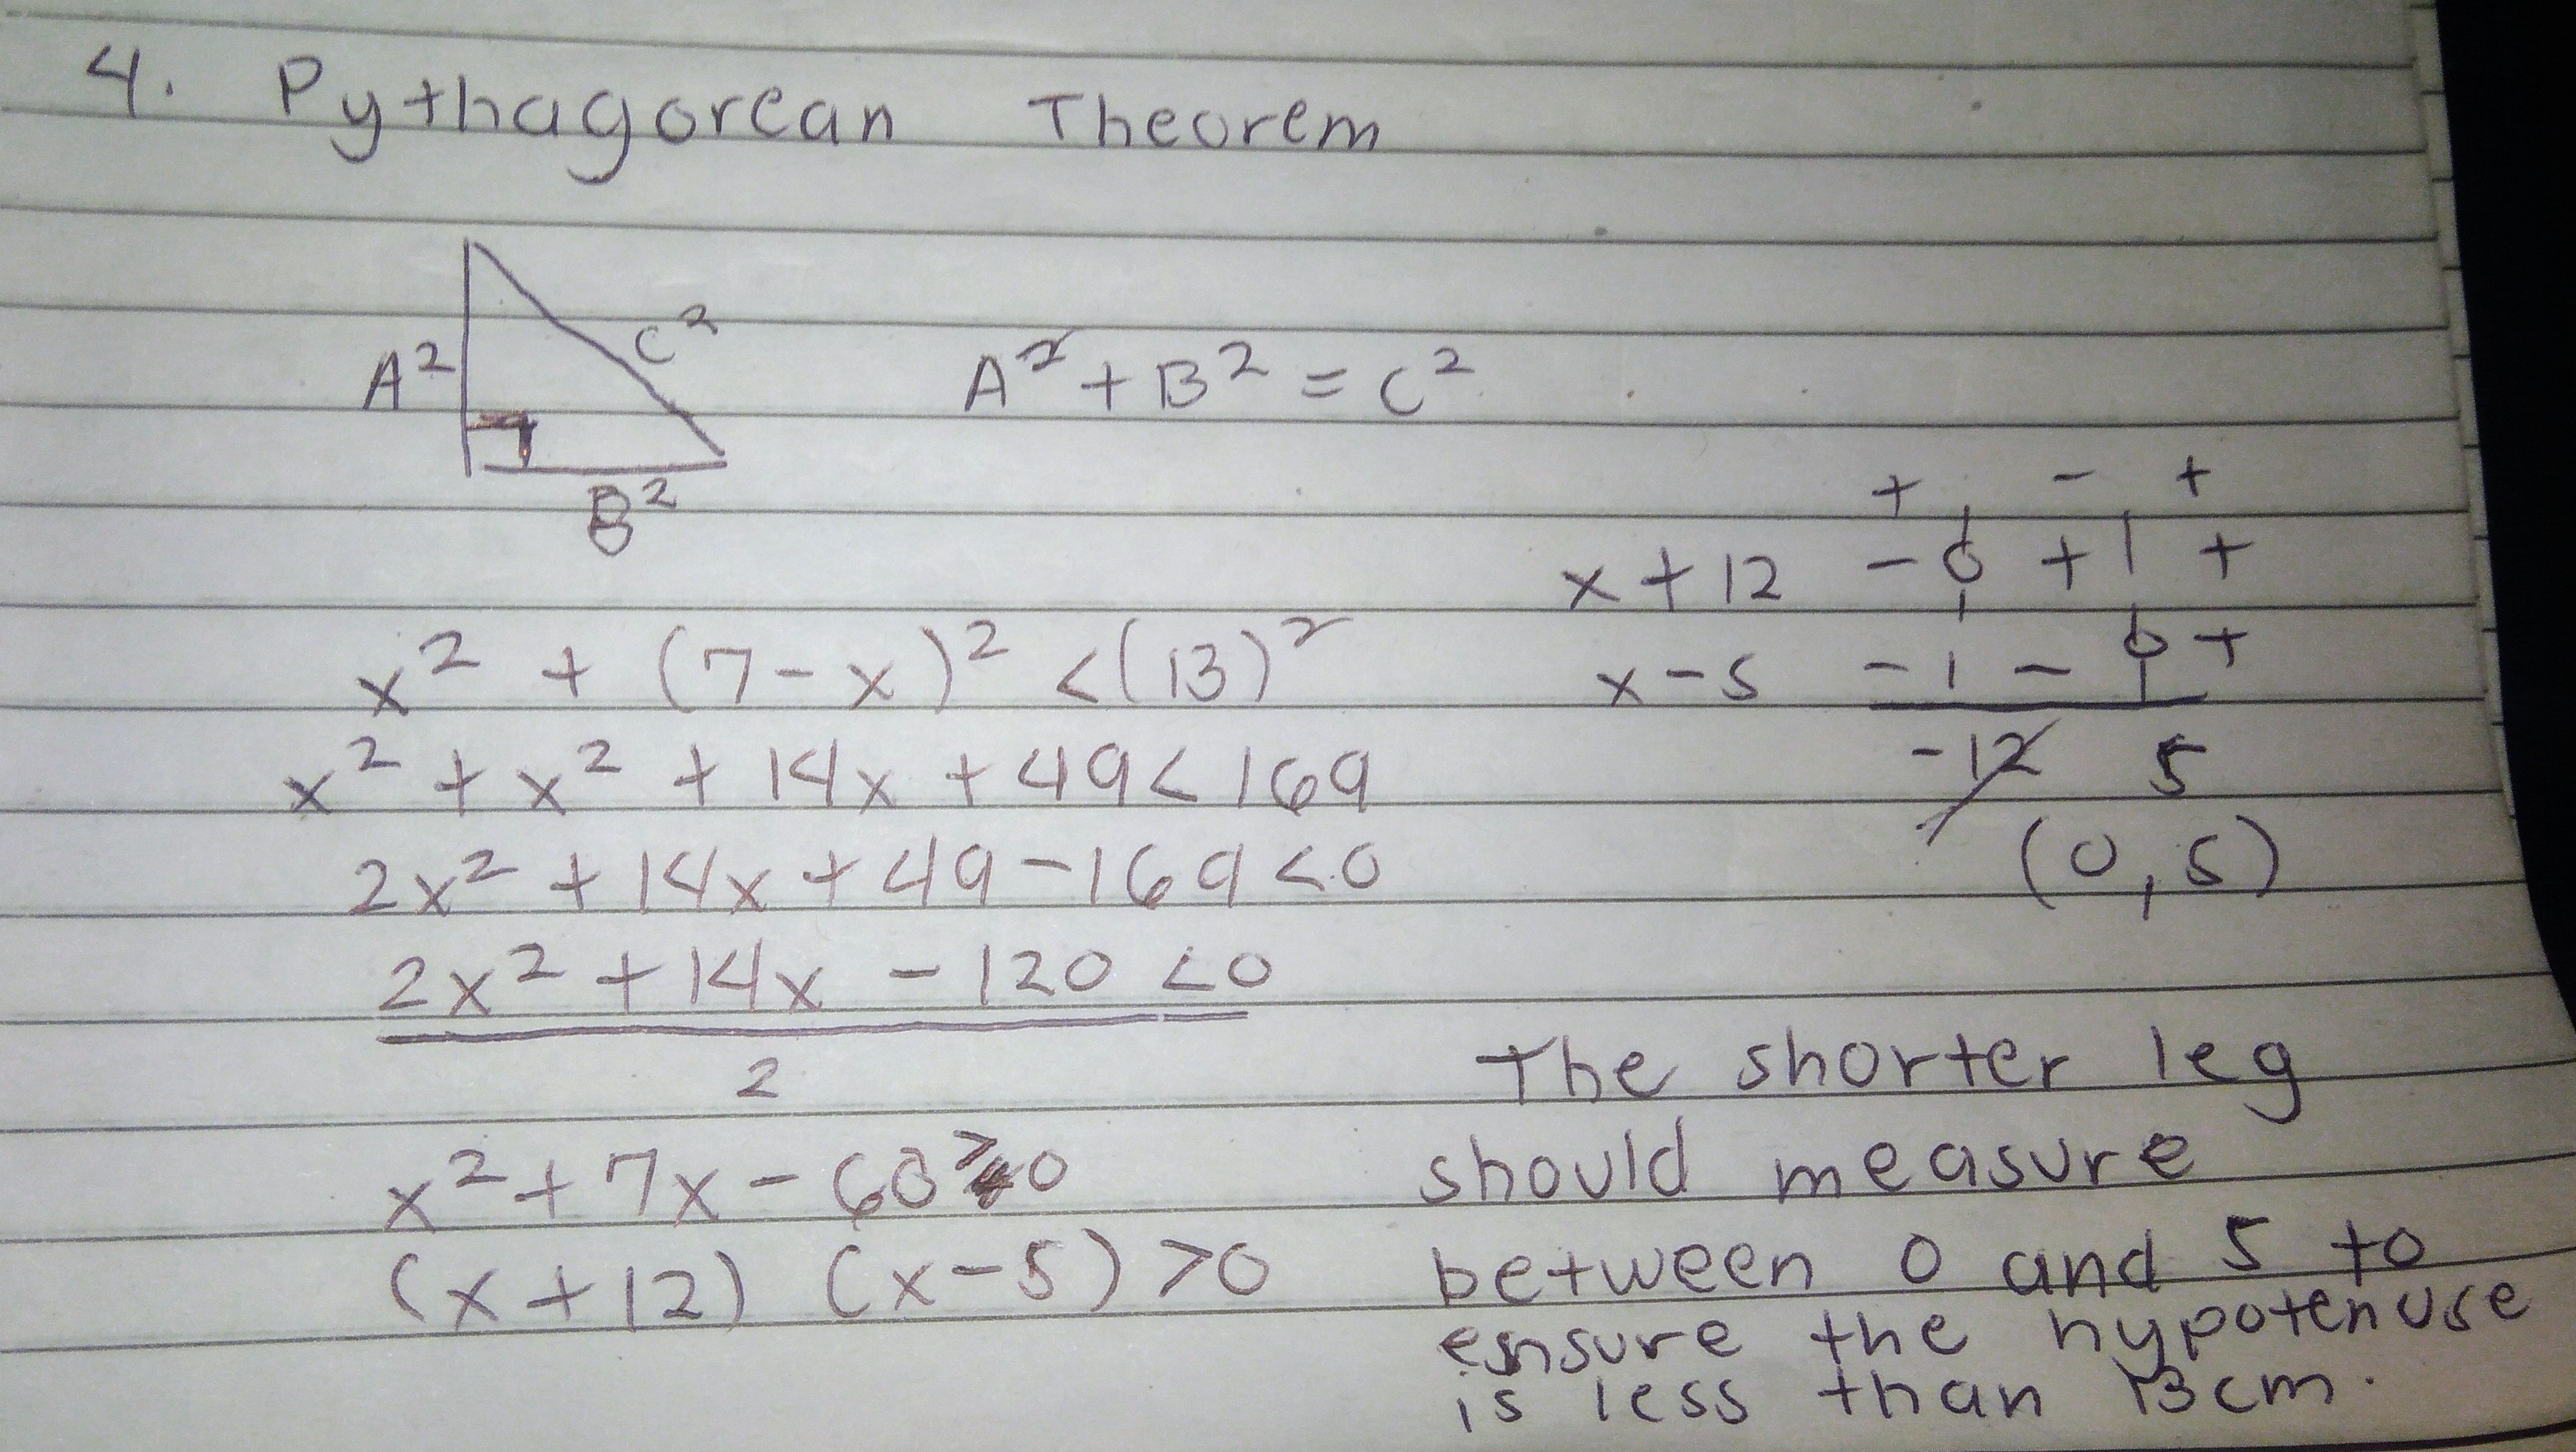 4. Pythagorean Theorem
A² C²
B²
A² + B² = C²
x² + (7-x)² < (13)²
x² + x² + 14x + 49 < 169
2x² + 14x + 49 - 169 < 0
2x² + 14x - 120 < 0
2
x² + 7x - 60 > 0
(x + 12) (x - 5) > 0
+ - +
x + 12 - 0 + | +
x - 5 - | - 0 +
-12 5
(0, 5)
The shorter leg
should measure
between 0 and 5 to
ensure the hypotenuse
is less than 13 cm.